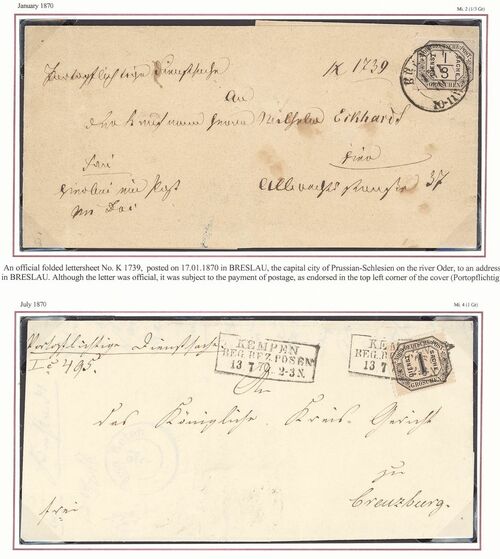 January 1870
Mi. 2 (1/3 Gr)
Portopflichtige Dienstsache
K 1739
NORDDEUTSCHE-POST
1/3
GROSCHEN
An
den Kaufmann Herrn Wilhelm Eckhardt
frei
hier
Albrechts Strasse 37
An official folded lettersheet No. K 1739, posted on 17.01.1870 in BRESLAU, the capital city of Prussian-Schlesien on the river Oder, to an address
in BRESLAU. Although the letter was official, it was subject to the payment of postage, as endorsed in the top left corner of the cover (Portopflichtig
July 1870
Mi. 4 (1 Gr)
Portopflichtige Dienstsache
I c 495.
KEMPEN
REG. BEZ. POSEN
13 7 70 2-3N.
KEM
REG. B
13 7
1
GROSCHEN
An
das Königliche Kreis-Gericht
zu
Creuzburg.
frei